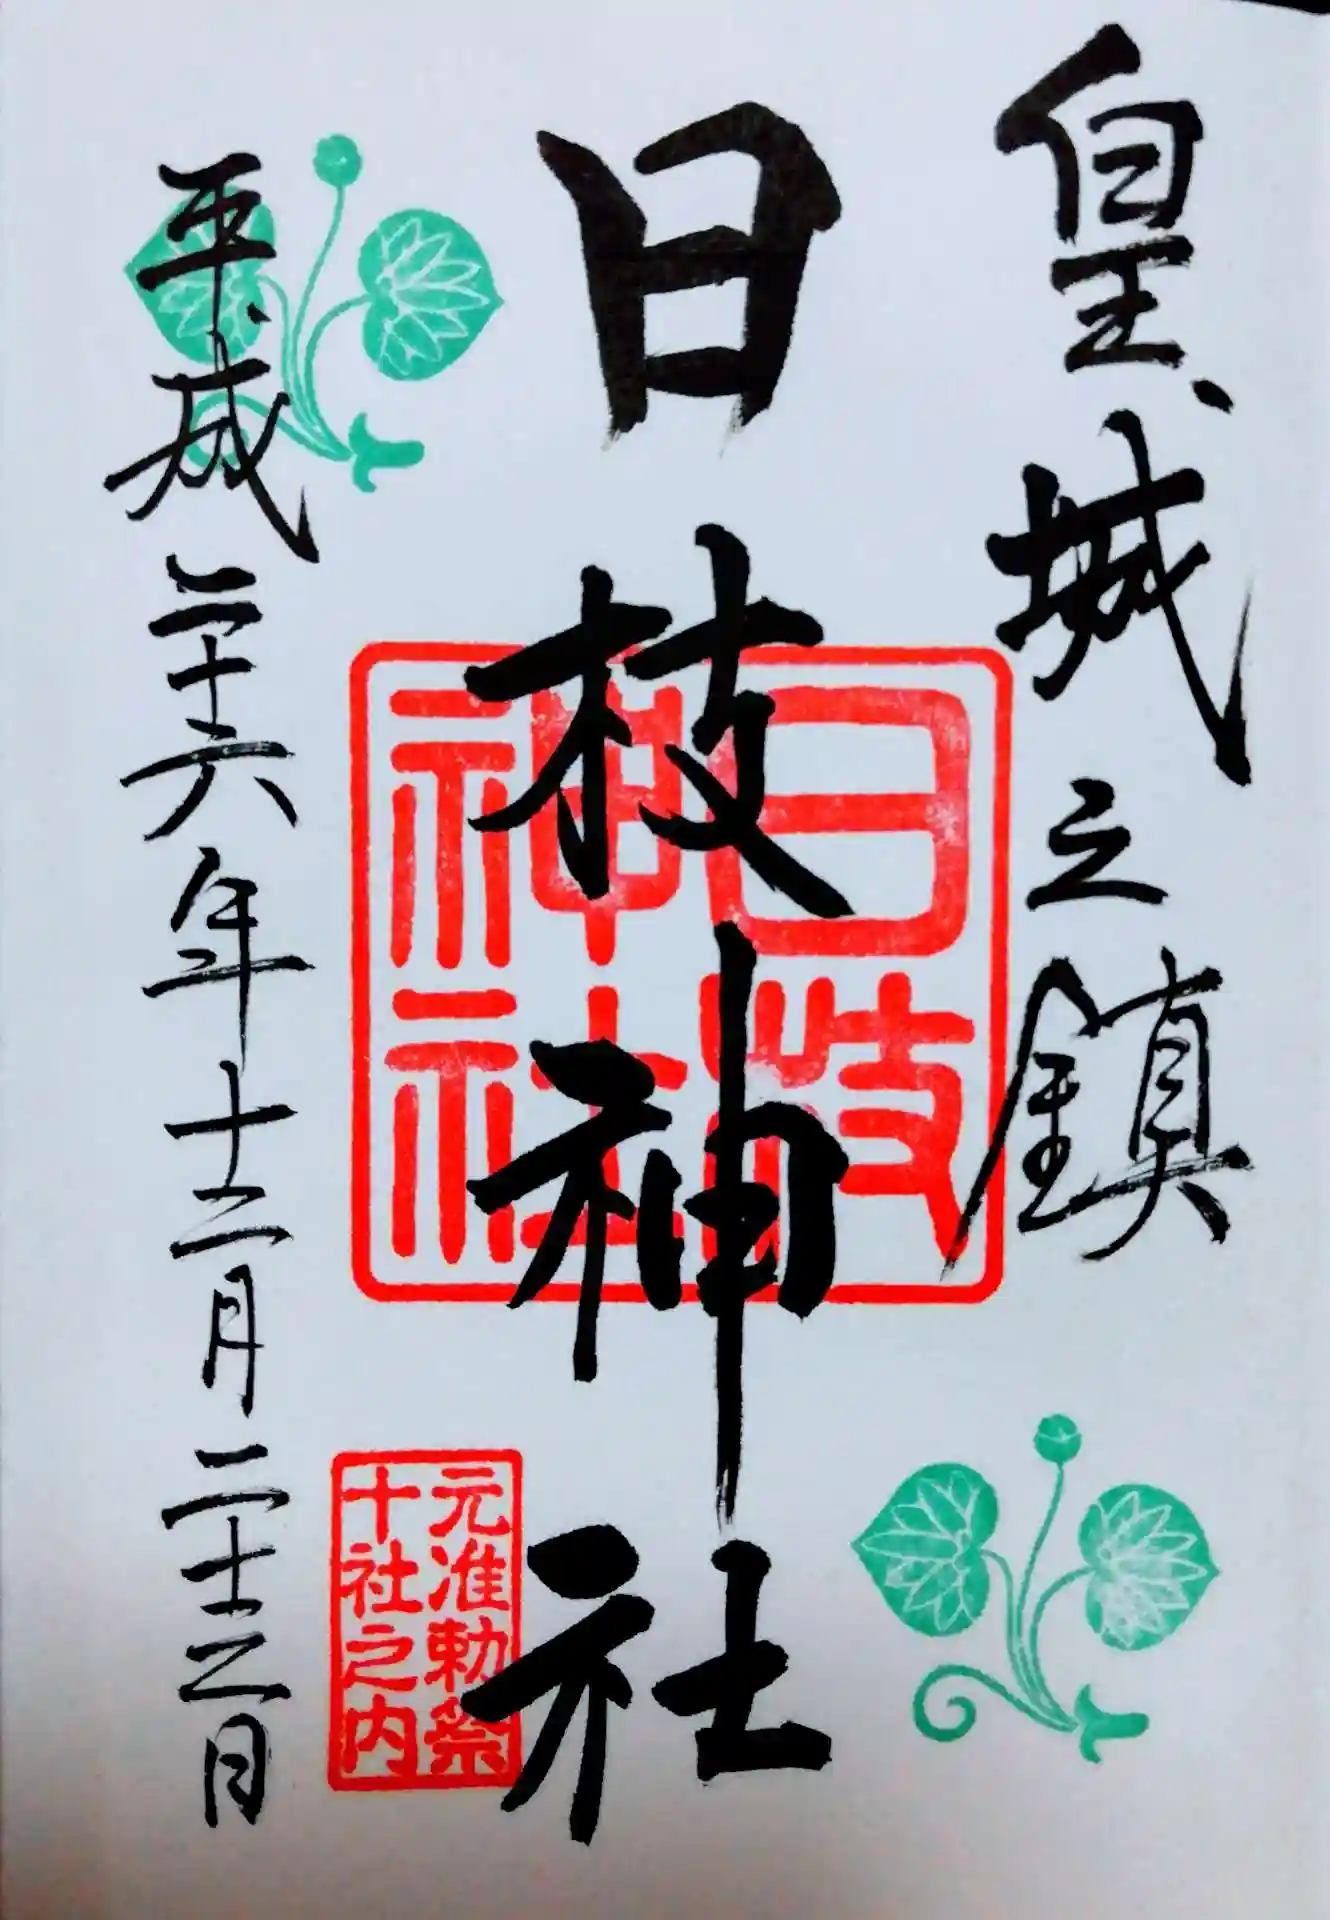 皇城之鎮
日枝神社
日枝
神社
元准勅祭
十社之内
平成二十六年十二月二十三日